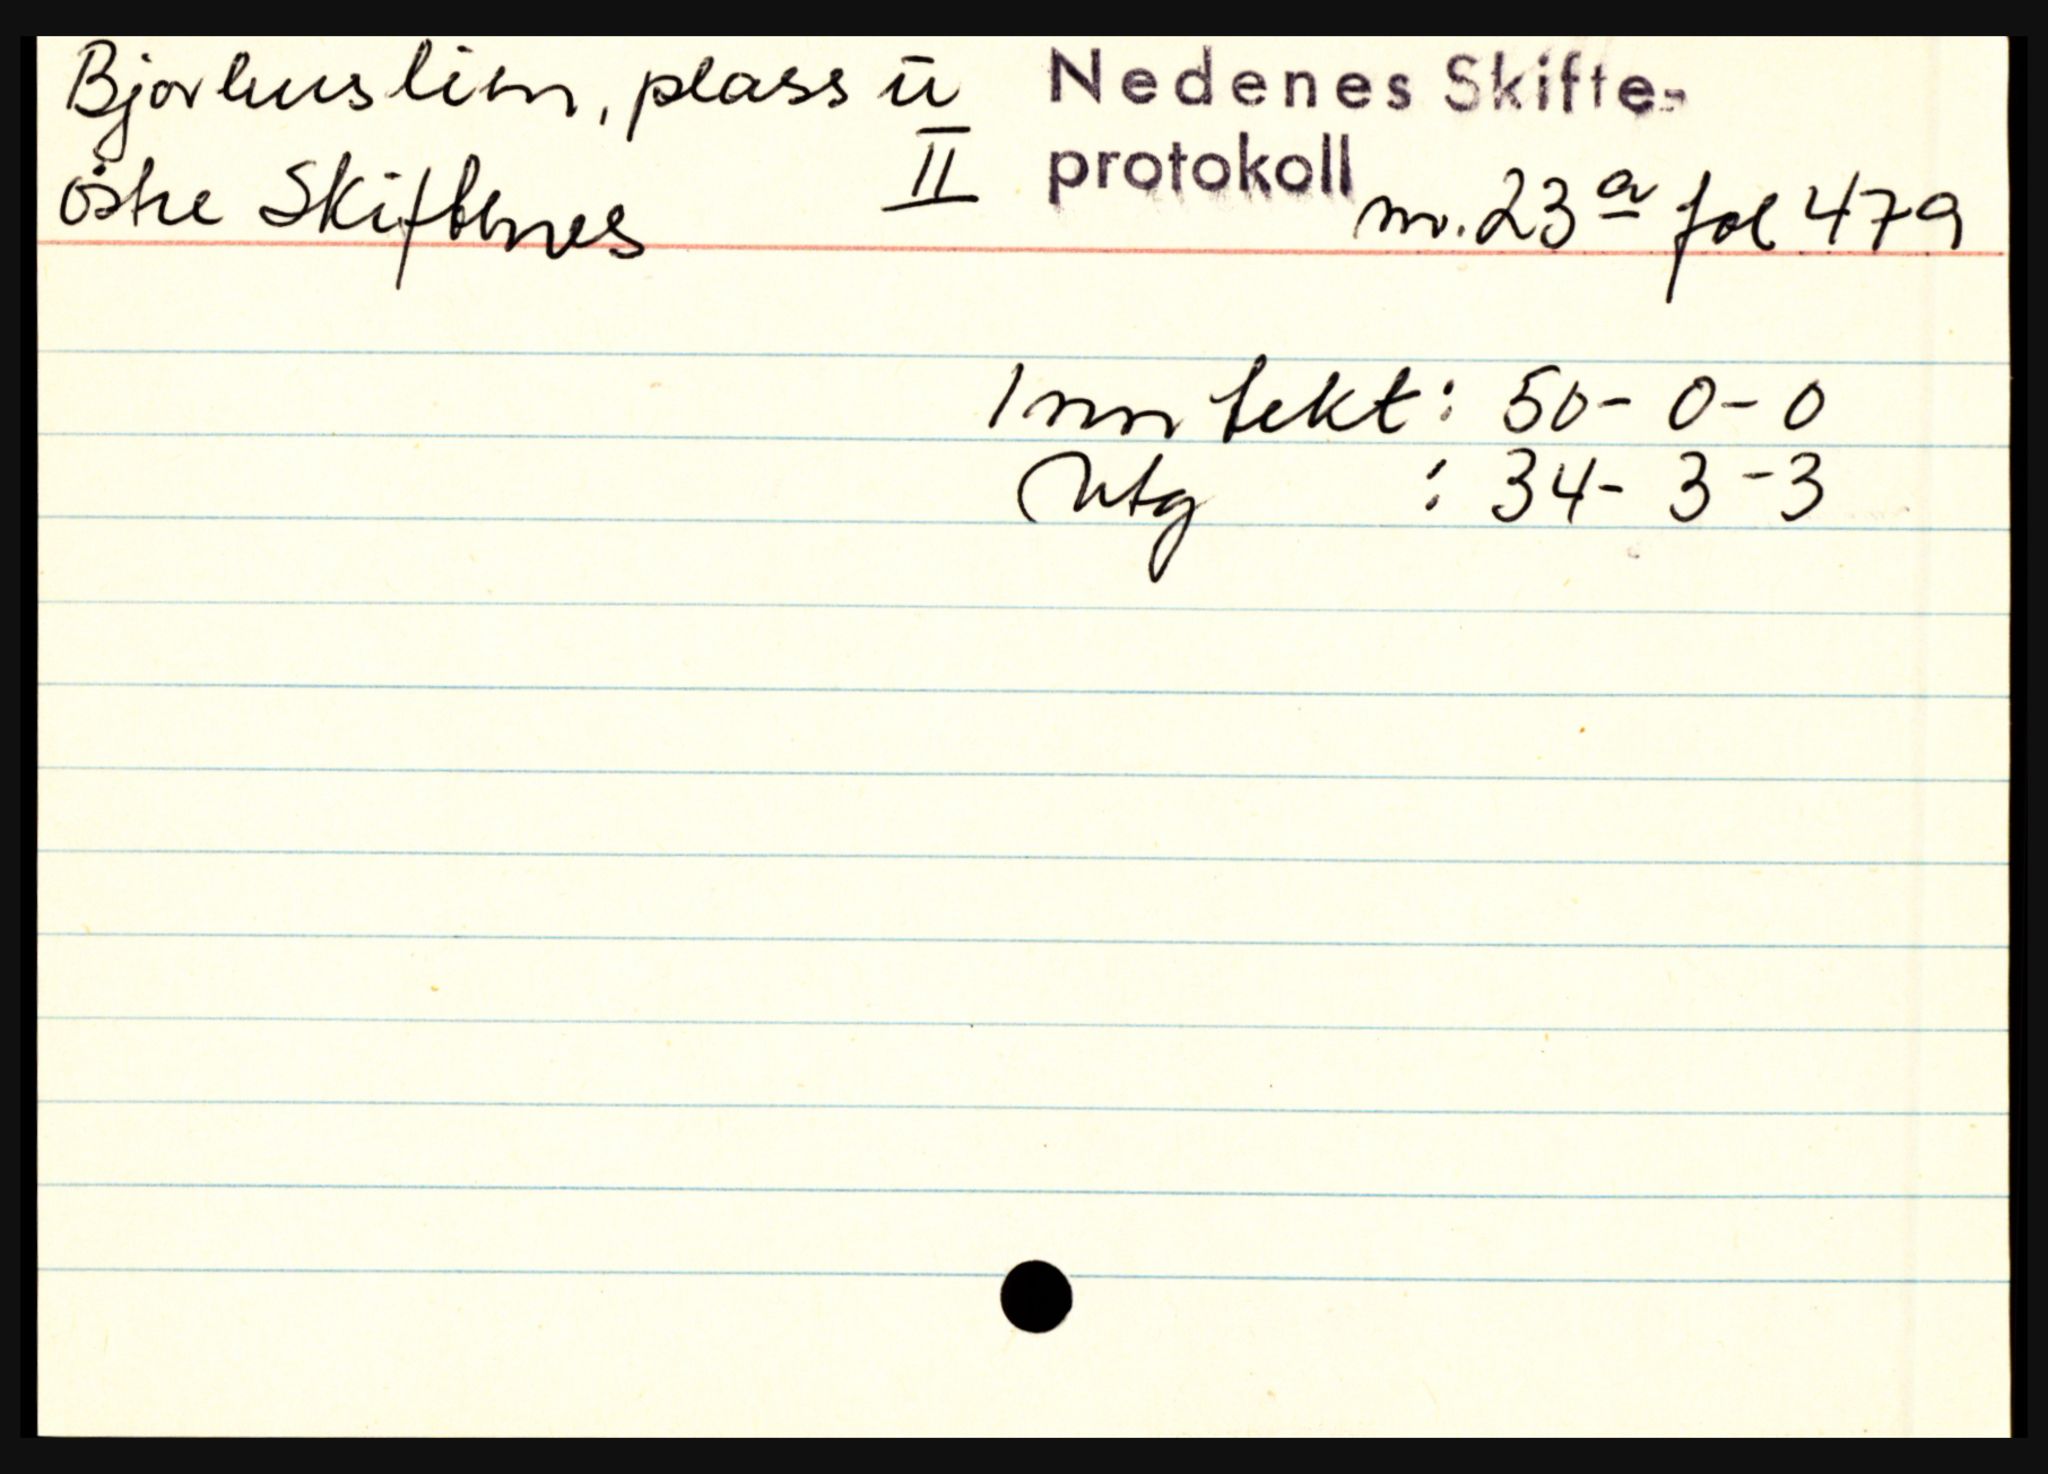 Bjorhuslien, plass u
östre Skiftenes
II
Nedenes Skifte-
protokoll
nr. 23a fol 479
Inntekt: 50-0-0
Utg : 34-3-3